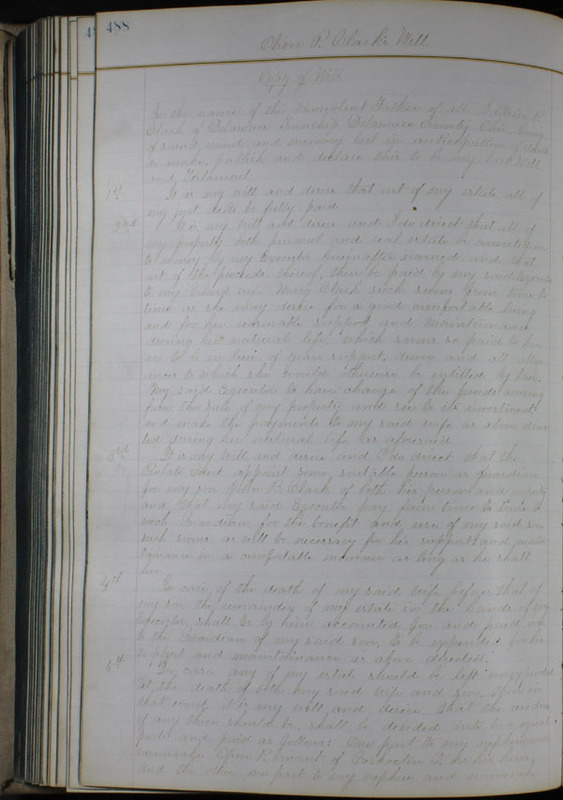 488
Oliver P. Clark's Will
Copy of Will
In the name of the Benevolent Father of all. I Oliver P.
Clark of Delaware Township Delaware County Ohio, being
of sound mind and memory but in anticipation of death
do make, publish and declare this to be my last Will
and Testament
1st It is my will and desire that out of my estate all of
my just debts be fully paid
2nd It is my will and desire and I do direct that all of
my property both personal and real estate be converted
to money by my Executor hereinafter named and that
out of the proceeds thereof, there be paid by my said Executor
to my beloved wife Mary Clark such sums from time to
time as she may desire for a good comfortable living
and for her reasonable support and maintainance
during her natural life, which sums so paid to her
are to be in lieu of years support, dower and all allow
ances to which she would otherwise be entitled by law.
My said Executor to have charge of the funds arising
from the sale of my property and see to its investment
and make the payments to my said wife as above direc
ted during her natural life as aforesaid
3rd It is my will and desire and I do direct that the
Probate Court appoint some suitable person as Guardian
for my son John B. Clark of both his person and
and that my said Executor pay from time to time to
such Guardian for the benefit and use of my said son
such sums as will be necessary for his support and main
tainance in a comfortable manner as long as he shall
live
4th In case of the death of my said wife before that of
my son the remainder of my estate in the hands of my
Executor shall be by him accounted for and paid over
to the Guardian of my said son, to be expended for his
support and maintainance as above directed.
5th In case any of my estate should be left unexpended
at the death of both my said wife and son, then in
that event it is my will and desire, that the residue
if any there should be, shall be divided into two equal
parts and paid as follows: One part to my nephew and
namesake Oliver P. Vincent of his heirs,
and the other one part to my nephew and